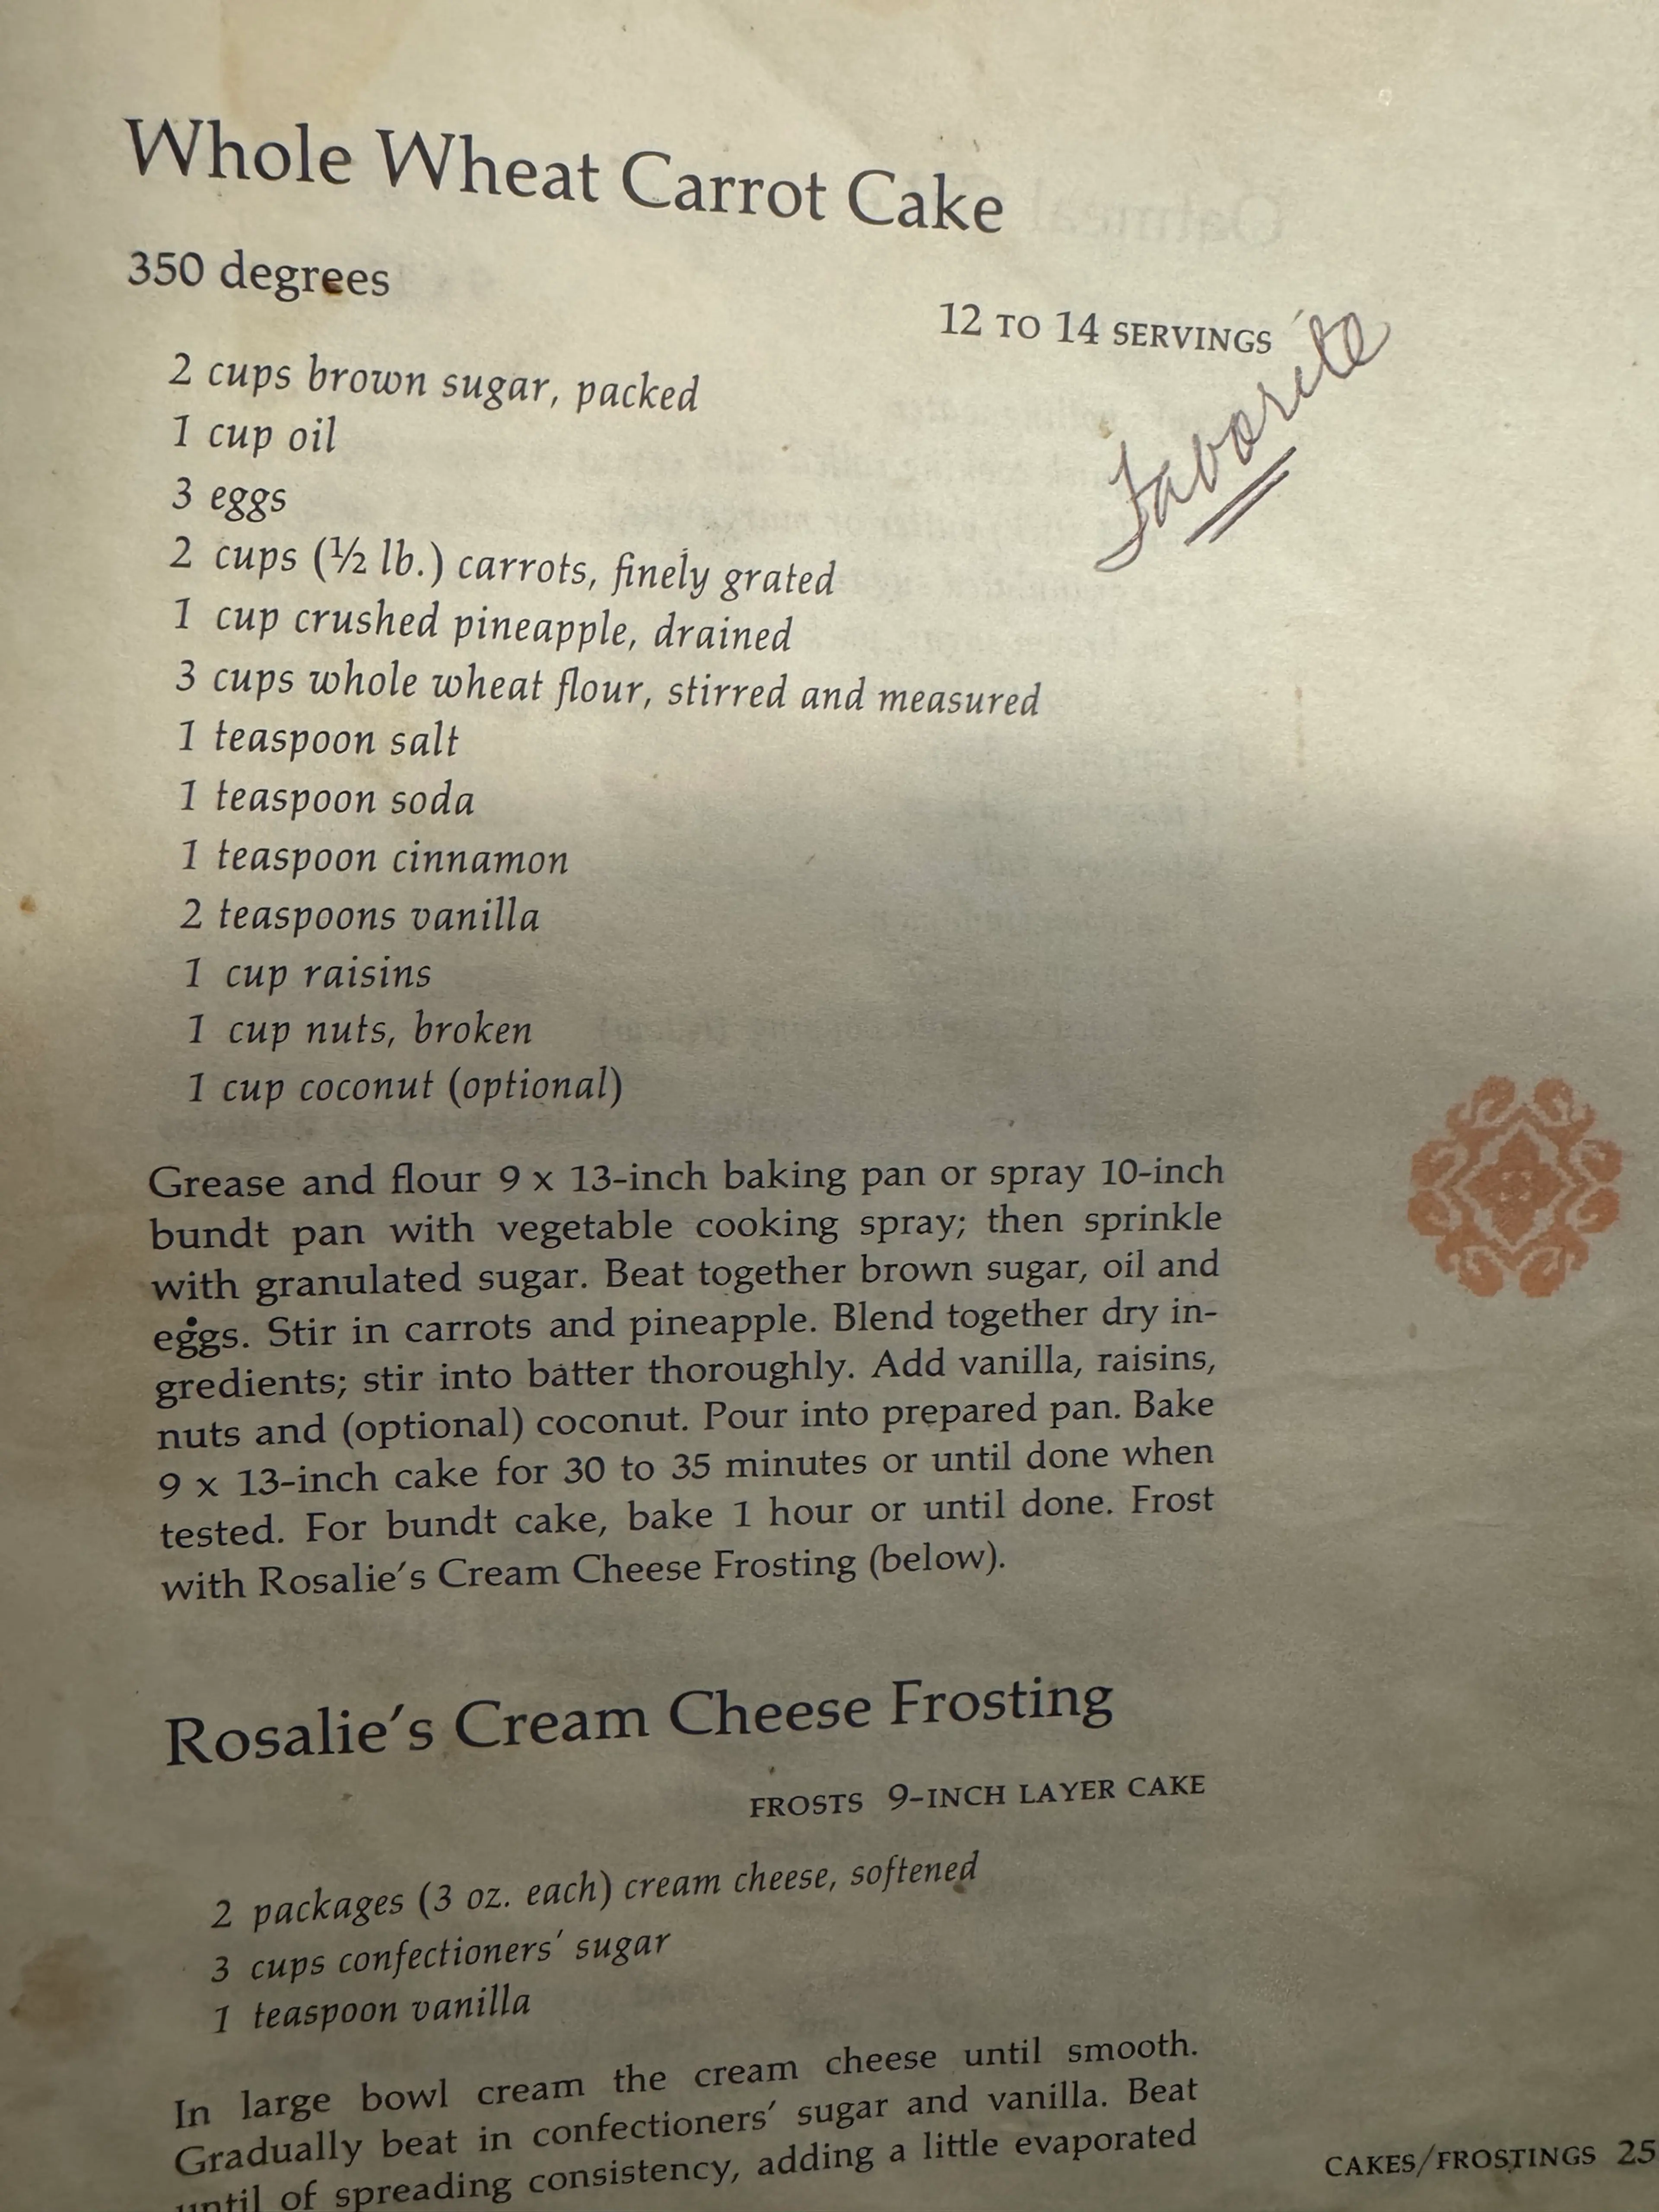 Whole Wheat Carrot Cake
350 degrees
12 TO 14 SERVINGS
Favorite
2 cups brown sugar, packed
1 cup oil
3 eggs
2 cups (½ lb.) carrots, finely grated
1 cup crushed pineapple, drained
3 cups whole wheat flour, stirred and measured
1 teaspoon salt
1 teaspoon soda
1 teaspoon cinnamon
2 teaspoons vanilla
1 cup raisins
1 cup nuts, broken
1 cup coconut (optional)
Grease and flour 9 x 13-inch baking pan or spray 10-inch
bundt pan with vegetable cooking spray; then sprinkle
with granulated sugar. Beat together brown sugar, oil and
eggs. Stir in carrots and pineapple. Blend together dry in-
gredients; stir into batter thoroughly. Add vanilla, raisins,
nuts and (optional) coconut. Pour into prepared pan. Bake
9 x 13-inch cake for 30 to 35 minutes or until done when
tested. For bundt cake, bake 1 hour or until done. Frost
with Rosalie's Cream Cheese Frosting (below).
Rosalie's Cream Cheese Frosting
FROSTS 9-INCH LAYER CAKE
2 packages (3 oz. each) cream cheese, softened
3 cups confectioners' sugar
1 teaspoon vanilla
In large bowl cream the cream cheese until smooth.
Gradually beat in confectioners' sugar and vanilla. Beat
until of spreading consistency, adding a little evaporated
CAKES/FROSTINGS 25